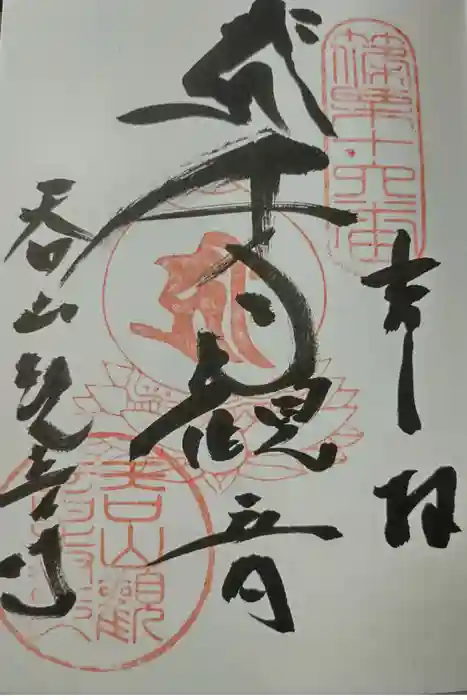 奉拝
篠栗十六番
千手観世音
呑山観音寺